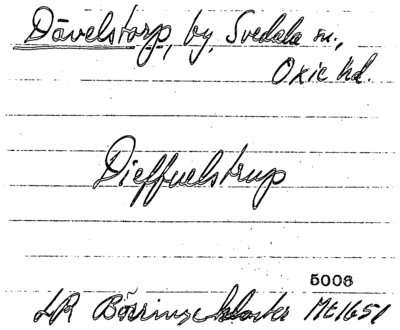 Dävelstorp, by, Svedala sn.,
Oxie hd.
Dieffuelstrup
5006
LR Börringe kloster Mt 1651